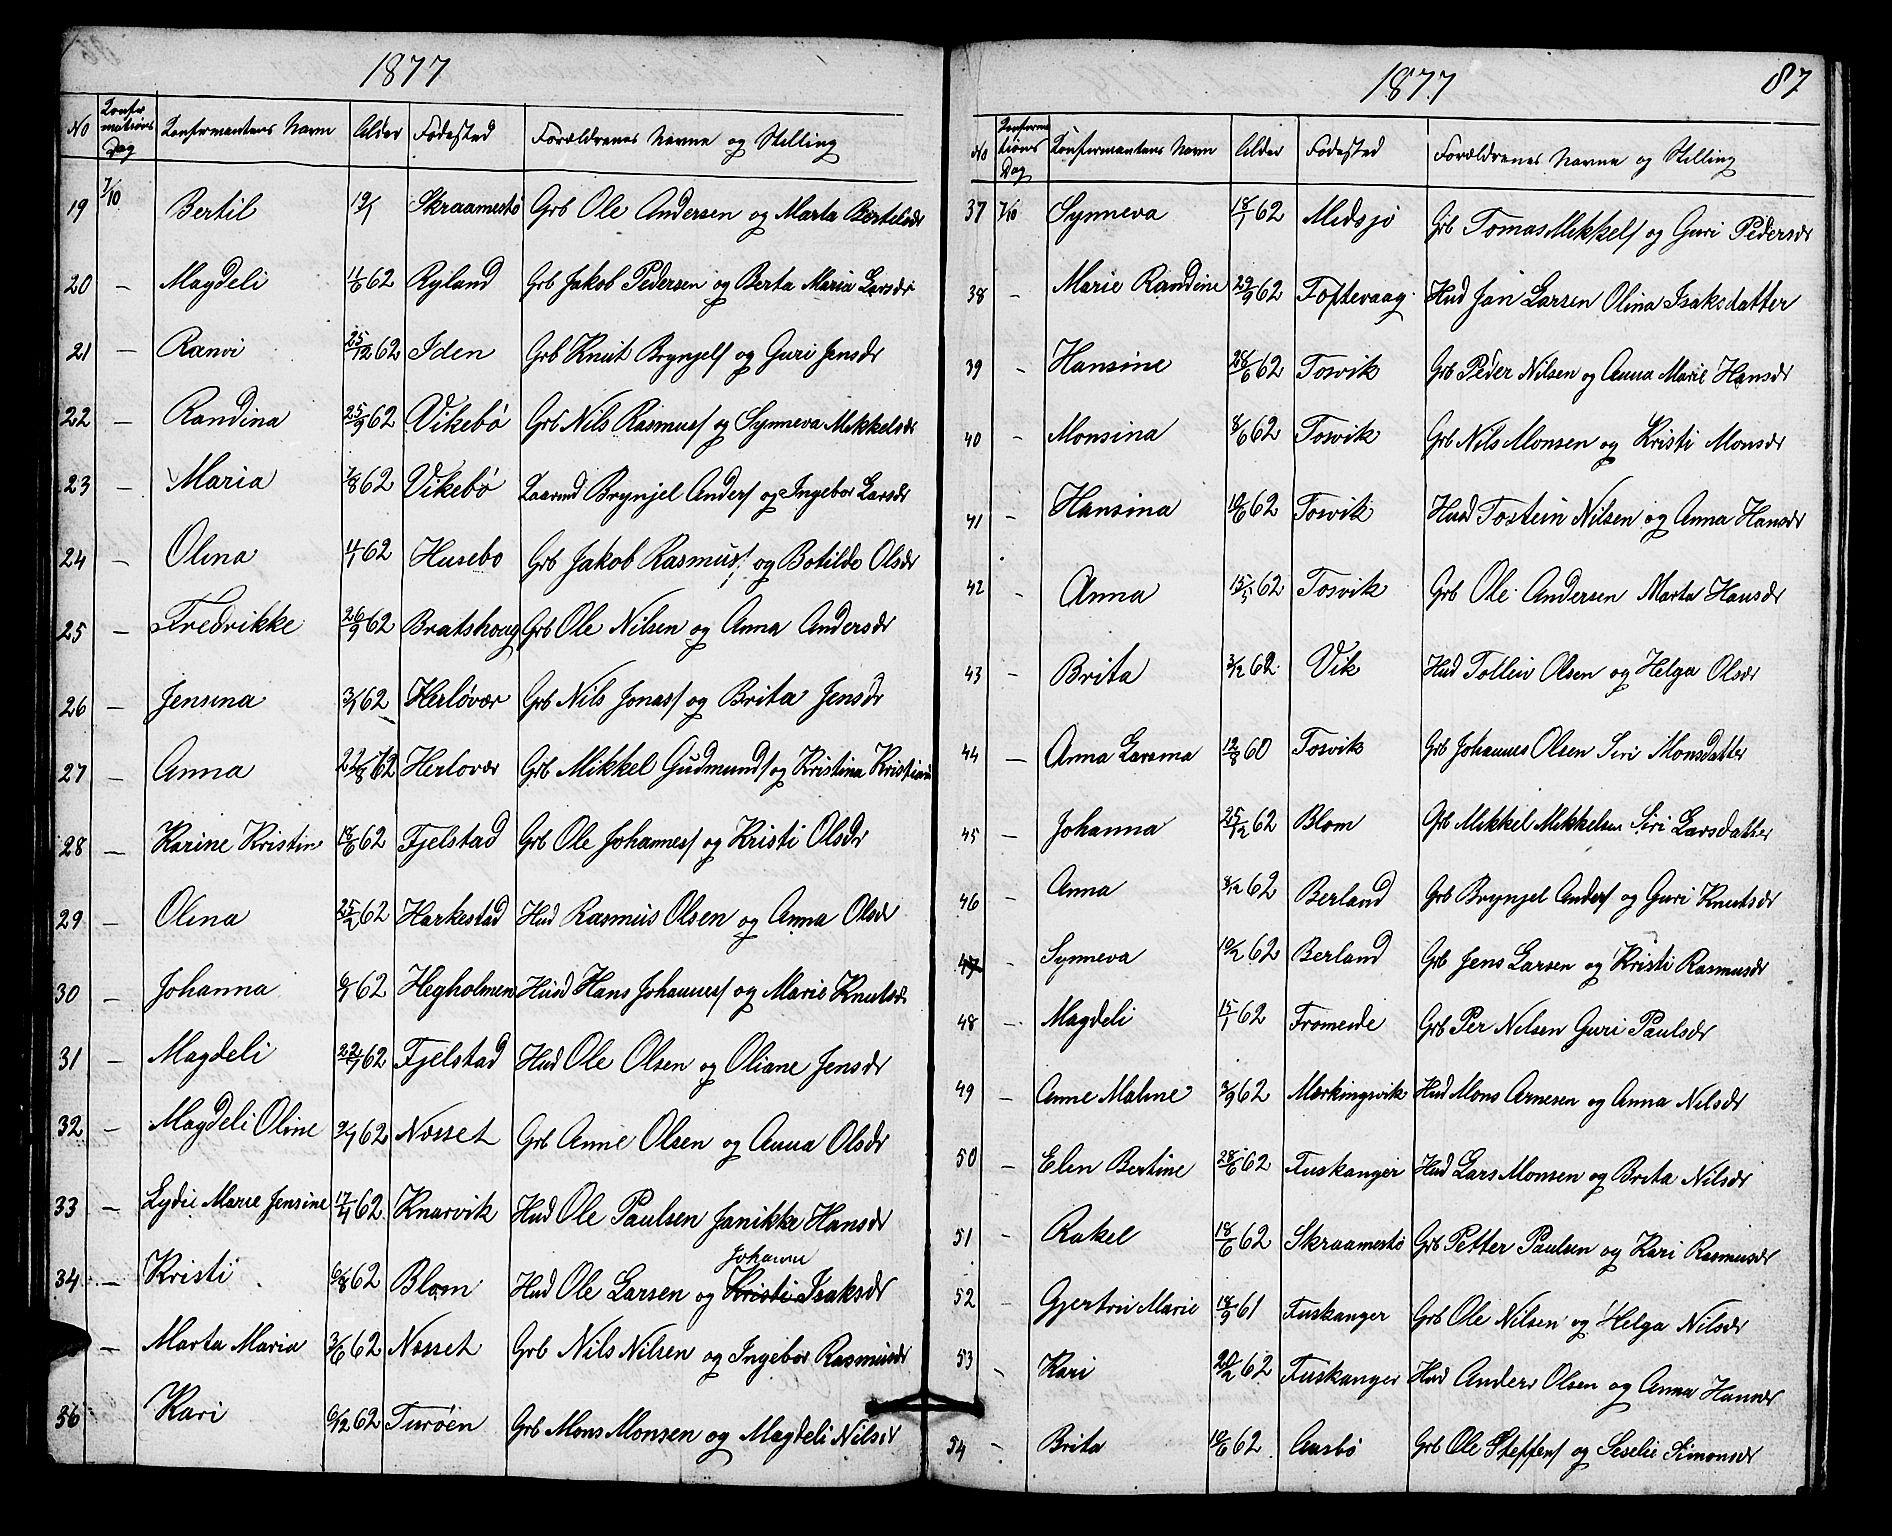 1877
No Konfirmations Dag Konfirmantens Navn Alder Fødested Forældrenes Navne og Stilling
19 7/10 Bertil 19/1 Skraamestø Grb Ole Andersen og Marta Bertilsdr
20 — Magdeli 11/6 62 Ryland Grb Jakob Pedersen og Berta Maria Larsdr
21 — Ranvi 25/12 62 Iden Grb Knut Brynjels og Guri Jensdr
22 — Randina 25/9 62 Vikebø Grb Nils Rasmuss og Synneva Mikkelsdr
23 — Maria 7/8 62 Vikebø Laarmd Brynjel Anders og Ingebor Larsdr
24 — Olina 4/1 62 Husebo Grb Jakob Rasmuss og Botilde Olsdr
25 — Fredrikke 26/9 62 Bratshoug Grb Ole Nilsen og Anna Andersdr
26 — Jensina 3/1 62 Herløvær Grb Nils Jonass og Brita Jensdr
27 — Anna 22/8 62 Herlovær Grb Mikkel Gudmunds og Kristina Kristians
28 — Karine Kristine 18/6 62 Fjelstad Grb Ole Johanness og Kristi Olsdr
29 — Olina 25/2 62 Harkestad Hud Rasmus Olsen og Anna Olsdr
30 — Johanna 6/1 62 Hegholmen Husd Hans Johanness og Marie Knutsdr
31 — Magdeli 22/1 62 Fjelstad Hud Ole Olsen og Oliane Jensdr
32 — Magdeli Oline 9/7 62 Nosset Grb Anne Olsen og Anna Olsdr
33 — Lydie Marie Jensine 17/4 62 Knarvik Hud Ole Paulsen Janikke Hansdr
Johanne
34 — Kristi 6/8 62 Blom Hud Ole Larsen og Kristi Isaksdr
— Marta Maria 3/6 62 Nosset Grb Nils Nilsen og Ingebor Rasmusdr
36 Kari 6/12 62 Turöen Grb Mons Monsen og Magdeli Nilsdr
1877 87
No Konfirmations Dag Konfirmantens Navn Alder Fødested Forældrenes Navne og Stilling
37 7/10 Synneva 18/1 62 Midsjö Grb Tomas Mikkels og Guri Pedersdr
38 — Marie Randine 29/9 62 Toftevaag Hud Jan Larsen Olina Isaksdatter
39 — Hansine 28/6 62 Tosvik Grb Peder Nilsen og Anna Marie Hansdr
40 — Monsina 8/6 62 Tosvik Grb Nils Monsen og Kristi Monsdr
41 — Hansina 10/6 62 Tosvik Husd Tostein Nilsen og Anna Hansdr
42 — Anna 15/5 62 Tosvik Grb Ole Andersen Marta Hansdr
43 — Brita 3/12 62 Vik Hud Tolleiv Olsen og Helga Olsdr
44 — Anna Larsina 12/8 60 Tosvik Grb Johannes Olsen Siri Monsdatter
45 — Johanna 25/12 62 Blom Grb Mikkel Mikkelsen Siri Larsdatter
46 — Anna 8/12 62 Berland Grb Brynjel Anders og Guri Knutsdr
47 — Synneva 10/2 62 Berland Grb Jens Larsen og Kristi Rasmusdr
48 — Magdeli 15/1 62 Fromeide Grb Per Nilsen Guri Paulsdr
49 — Anne Maline 3/9 62 Morkingsvik Hud Mons Arnesen og Anna Nilsdr
50 — Elen Bertine 28/6 62 Fuskanger Hud Lars Monsen og Brita Nilsdr
51 — Rakel 18/6 62 Skraamestø Grb Petter Paulsen og Kari Rasmusdr
52 — Gjertru Marie 18/9 61 Fuskanger Grb Ole Nilsen og Helga Nilsdr
53 — Kari 20/2 62 Fuskanger Hud Anders Olsen og Anna Hansdr
54 — Brita 10/6 62 Aasbø Grb Ole Steffens og Seselie Simonsdr